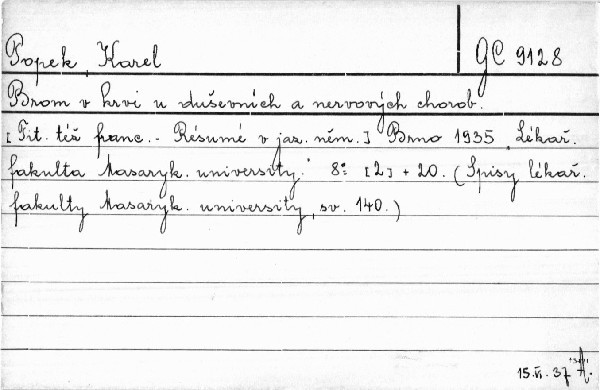 Popek, Karel
GC 9128
Brom v krvi u duševních a nervových chorob.
[Tit. též franc. - Résumé v jaz. něm.] Brno 1935. Lékař.
fakulta Masaryk. university. 8° [2] + 20. (Spisy lékař.
fakulty Masaryk. university, sv. 140.)
15.VI.37